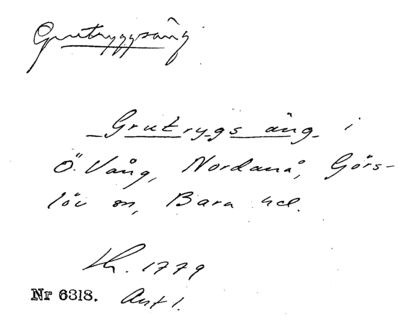 Grutryggsäng
Grutrygs äng i
Ö. Vång, Nordanå, Görs-
löv sn, Bara hd.
Lh. 1779
Nr 6318. Akt 1.